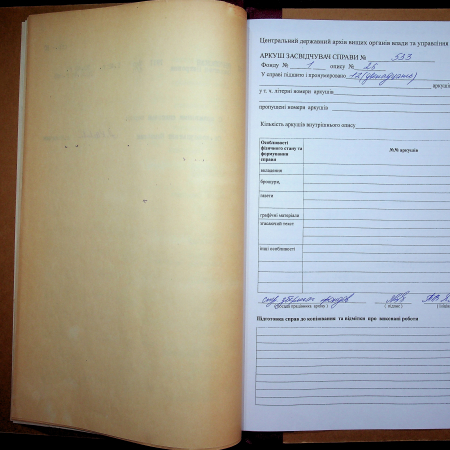 Центральний державний архів вищих органів влади та управління
АРКУШ ЗАСВІДЧУВАЧ СПРАВИ № 533
Фонду № 1 опису № 25
У справі підшито і пронумеровано 12 (дванадцять)
аркушів
у т. ч. літерні номери аркушів
пропущені номери аркушів
Кількість аркушів внутрішнього опису
Особливості фізичного стану та формування справи
№№ аркушів
вкладення
брошури,
газети
графічні матеріали
згасаючий текст
інші особливості
фондів
( підпис )
Підготовка справ до копіювання та відмітки про виконані роботи